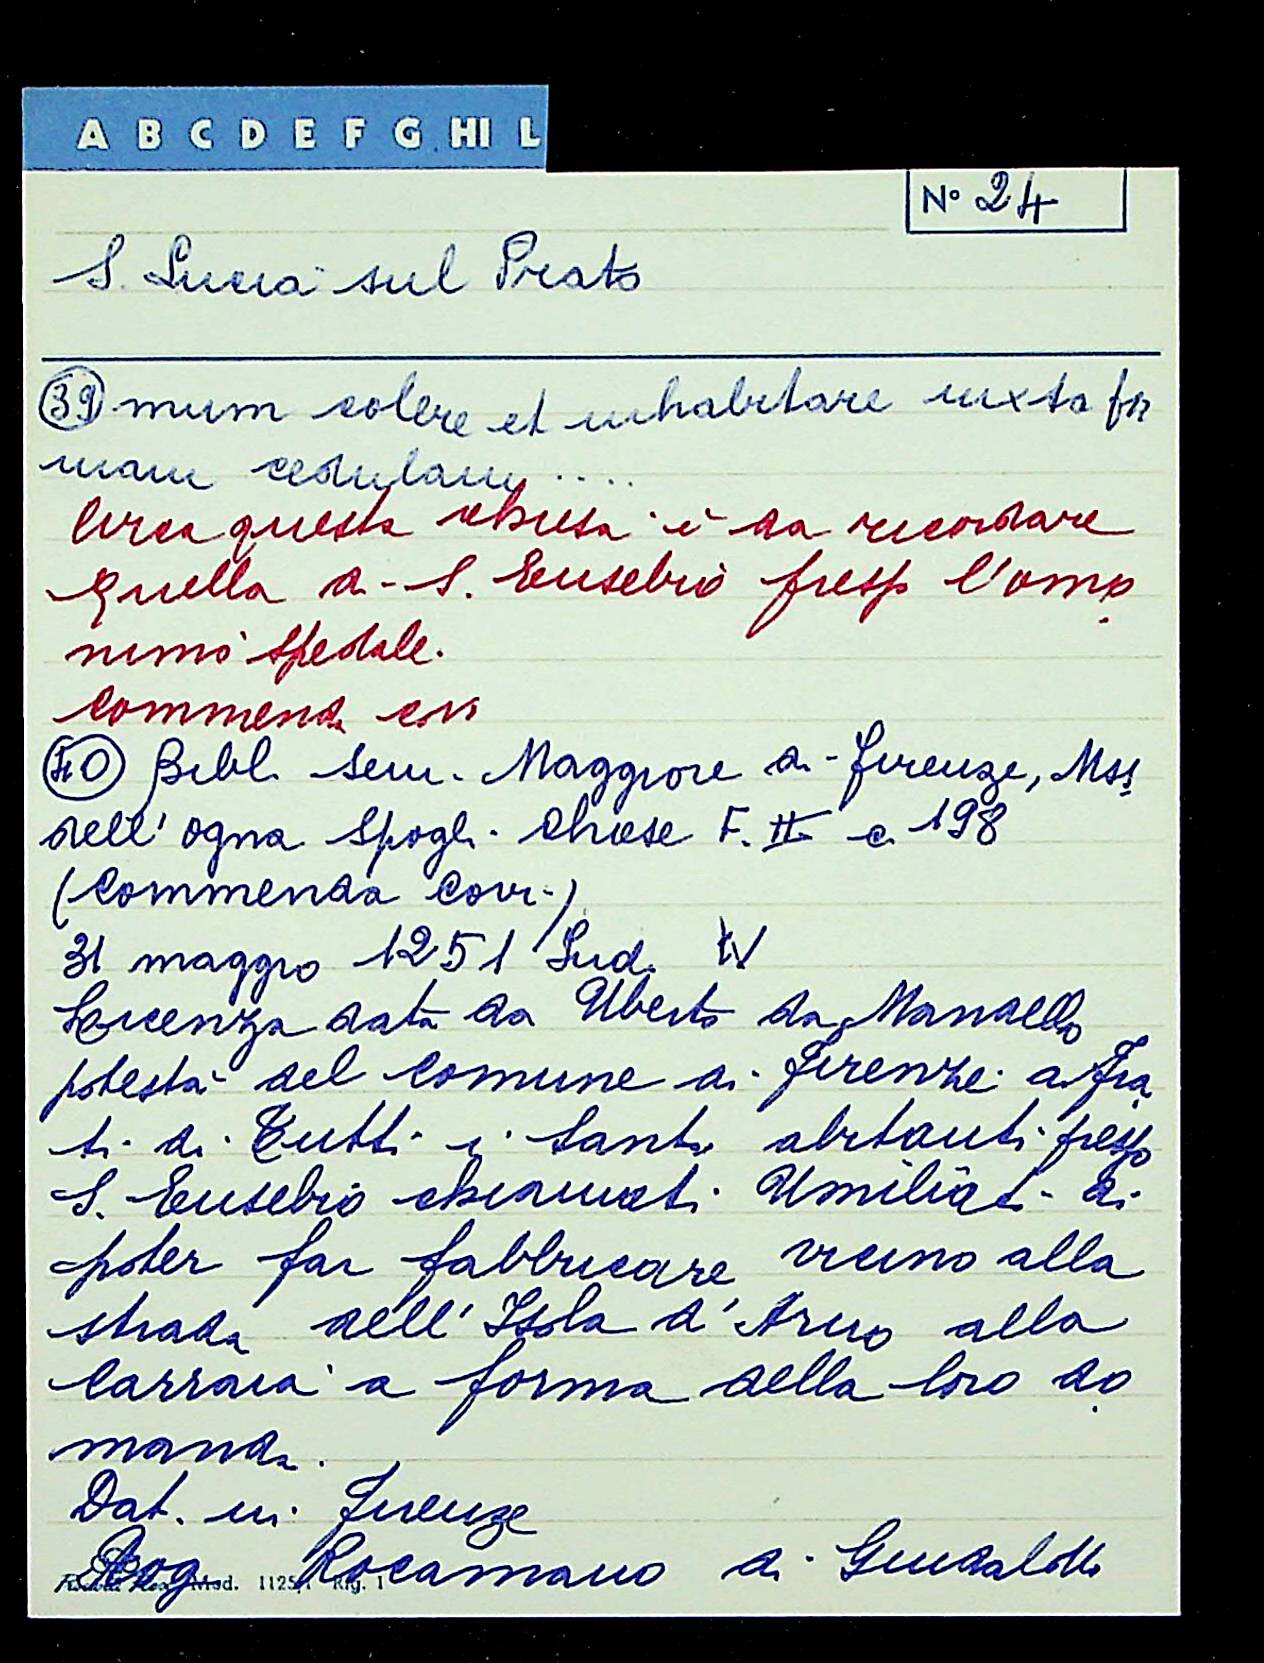 A B C D E F G HI L
N° 24
S. Lucia sul Prato
(39) mum colere et inhabitare iuxta for
mam cedulam ....
Circa questa chiesa è da ricordare
quella di S. Eusebio presso l'omo
nimo spedale.
Commenda cov
(40) Bibl. Sem. Maggiore di Firenze, Mss.
dell'Ogna Spogli Chiese F. II c. 198
(Commenda Covi-)
31 maggio 1251 Ind. IV
Licenza data da Uberto da Mandello
potestà del comune di Firenze a Fra
ti di Tutti i Santi abitanti presso
S. Eusebio chiamati Umiliati di
poter far fabbricare vicino alla
strada dell'Isola d'Arno alla
Carraia a forma della loro do
manda.
Dat. in Firenze
Rog. di
Mod. 1125/1 Rig. 1